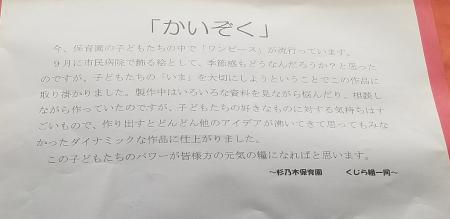 「かいぞく」
今、保育園の子どもたちの中で「ワンピース」が流行っています。
９月に市民病院で飾る絵として、季節感もどうなんだろうか？と思った
のですが、子どもたちの「いま」を大切にしようということでこの作品に
取り掛かりました。製作中はいろいろな資料を見ながら悩んだり、相談し
ながら作っていたのですが、子どもたちの好きなものに対する気持ちはす
ごいもので、作り出すとどんどん他のアイデアが沸いてきて思ってもみな
かったダイナミックな作品に仕上がりました。
この子どもたちのパワーが皆様方の元気の糧になればと思います。
～杉乃木保育園　くじら組一同～